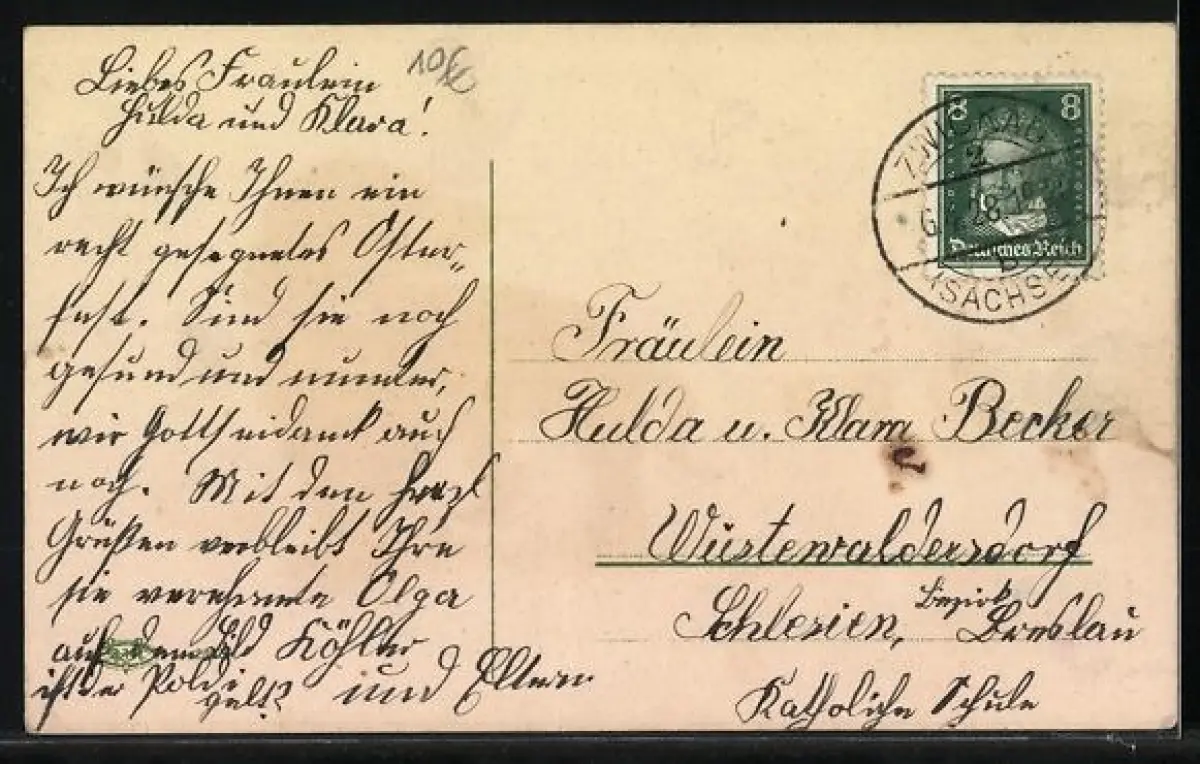 Liebes Fräulein
Hulda und Klara!
Ich wünsche Ihnen ein
recht gesegnetes Oster„
fest. Sind sie noch
gesund und munter,
wir Gottseidank auch
noch. Mit den herzl
Grüßen verbleibt Ihre
sie verehrende Olga
auf dem Bild Köhler
ist der Poldi und Eltern
gelt?
8 8
Deutsches Reich
ZWICKAU
(SACHSEN)
Fräulein
Hulda u. Klara Becker
Wüstewaldersdorf
Schlesien, Bezirk Breslau
Katholiche Schule